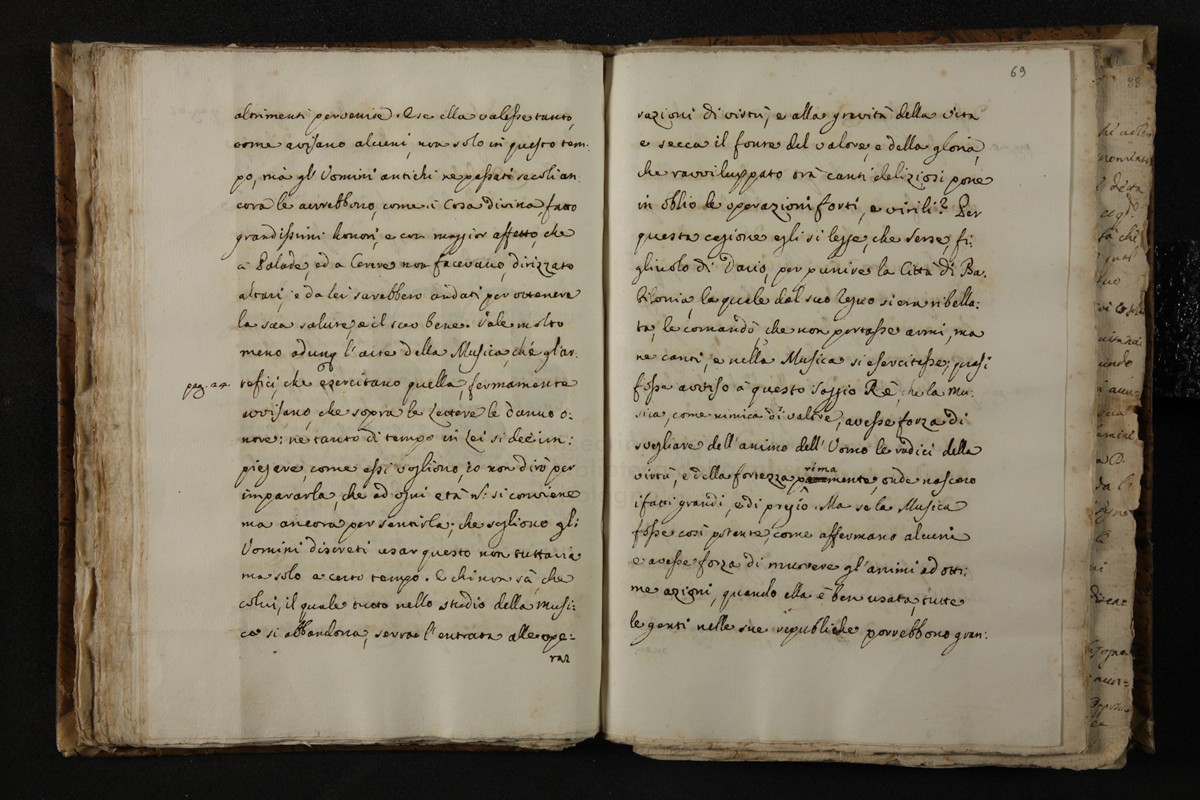 altrimenti pervenire. E se ella valesse tanto,
come avisano alcuni, non solo in questo tem:
po, mà gl'Uomini antichi ne passati secoli an:
cora le averebbono, come à Cosa divina, fatto
grandissimi honori, e con maggior affetto, che
à Palade, ed a Cerere non facevano, dirizzato
altari, e da lei sarebbero andati per ottenere
la sua salute, e il suo bene. Vale molto
meno adunq l'arte della Musica, chè gl'ar:
pag. 24 tefici, che exercitano quella, fermamente
avvisano, che sopra le Lettere le danno o:
nore: nè tanto di tempo in Lei si dee im:
piegare, come essi vogliono, Io non dirò per
impararla, che ad ogni età nō si conviene
ma ancora per sentirla; che sogliono gli
Uomini discreti usar questo non tuttavia
ma solo a certo tempo. E chi non sà, che
colui, il quale tutto nello studio della Musi:
ca si abbandona, serra l'entrata alle ope:
raz
69
razioni di virtù, e alla gravità della vita
e secca il fonte del valore, e della gloria,
che ravviluppato trà canti deliziosi pone
in oblio le operazioni forti, e virili? Per
questa cagione egli si legge, che Serse fi:
gliuolo di Dario, per punire la Città di Ba:
bilonia, la quale dal suo Regno si era ribella:
ta, le comandò che non portasse armi, ma
ne canti, e nella Musica si esercitasse; quasi
fosse avviso à questo Saggio Rè, che la Mu:
sica, come nimica di valore, avesse forza di
svegliare dell'animo dell'Uomo le radici della
rima
virtù, e della fortezza pmente, onde nascono
i fatti grandi, e di pregio. Ma se la Musica
fosse così potente, come affermano alcuni
e avesse forza di muovere gl'animi ad otti:
me azioni, quando ella è ben usata, tutte
le genti nelle sue republiche porrebbono gran:
88